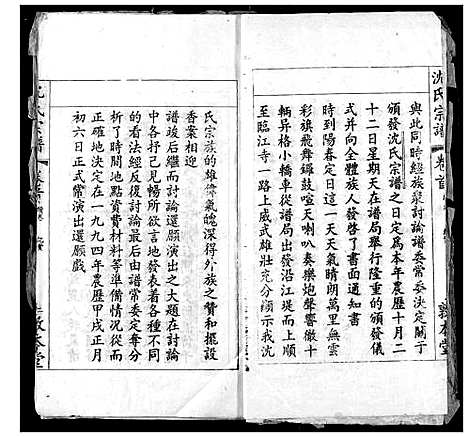 沈氏宗譜
卷首
敦本堂
與此同時經族衆討論譜委常委決定關于
頒發沈氏宗譜之日定爲本年農歷十月二
十二日星期天在譜局舉行隆重的頒發儀
式并向全體族人發了書面通知書
時到陽春定日這一天天氣晴朗萬里無雲
彩旗飛舞鑼鼓喧天喇叭奏樂炮聲響徹十
輛昇格小轎車從譜局出發沿江堤而上順
至臨江寺一路上威武雄壯充分顯示我沈
氏宗族的雄偉氣魄深得外族之贊和擺設
香案相迎
譜竣后繼而討論還願演出之大題在討論
中各抒己見暢所欲言地發表着各種不同
的看法經反復討論最后由譜常委定奪分
析了時間地點資費材料等準備情况從而
正確地決定在一九九四年農歷甲戌正月
初六日正式常演出還願戲